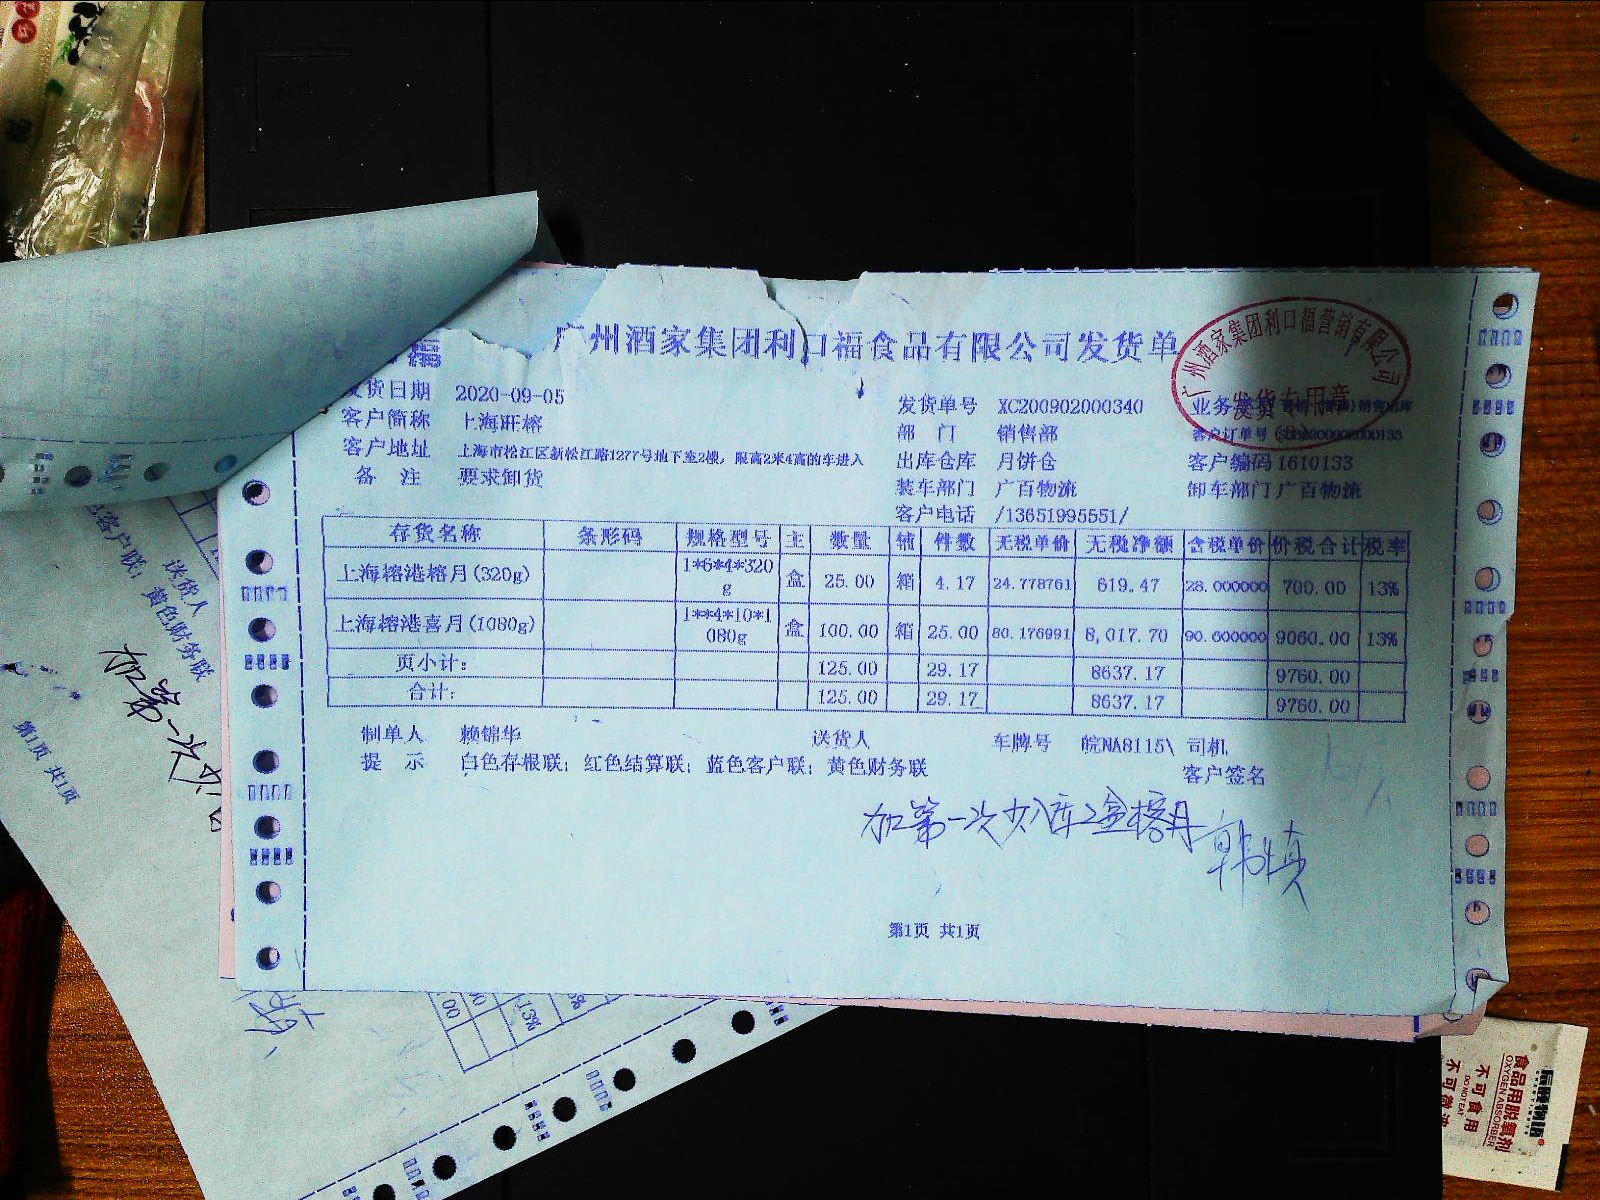 广州酒家集团利口福食品有限公司发货单
广州酒家集团利口福营销有限公司
发货专用章
发货日期 2020-09-05
发货单号 XC200902000340 业务
客户简称 上海旺榕
部 门 销售部 客户订单号
客户地址 上海市松江区新松江路1277号地下室2楼，限高2米4高的车进入
出库仓库 月饼仓 客户编码 1610133
备 注 要求卸货
装车部门 广百物流 卸车部门 广百物流
客户电话 /13651995551/
存货名称 条形码 规格型号 主 数量 辅 件数 无税单价 无税净额 含税单价 价税合计 税率
上海榕港榕月(320g) 1*6*4*320g 盒 25.00 箱 4.17 24.778761 619.47 28.000000 700.00 13%
上海榕港喜月(1080g) 1**4*10*1080g 盒 100.00 箱 25.00 80.176991 8,017.70 90.600000 9060.00 13%
页小计: 125.00 29.17 8637.17 9760.00
合计: 125.00 29.17 8637.17 9760.00
制单人 赖锦华 送货人 车牌号 皖NA8115\ 司机
提 示 白色存根联；红色结算联；蓝色客户联；黄色财务联 客户签名
加第一次少入库2盒榕月
第1页 共1页
送货人
客户联；黄色财务联
加第一次
第1页 共1页
13%
食品用脱氧剂
OXYGEN ABSORBER
不可食用
DO NOT EAT